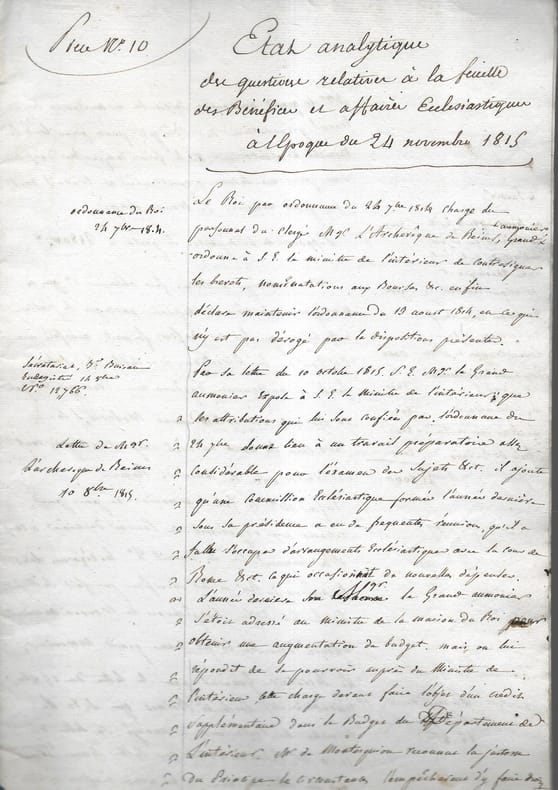 Piece N.° 10
Etat analytique
des questions relatives à la feuille
des Bénéfices et affaires Ecclesiastiques
à l'Epoque du 24 novembre 1815
ordonnance du Roi
24 7bre
Le Roi par ordonnance du 24 7bre charge du
personnel du Clergé Mgr L'Archevêque de Reims, Grand aumonier
ordonne à S. E. le ministre de l'intérieur de contresigner
les brevets, nominations aux Bourses &c. enfin
déclare maintenir l'ordonnance du 19 aout 1814, en ce qui
n'y est pas dérogé par les dispositions présentes.
Secrétariat, Bureau
Enregistré 14 8bre
N.° 12766.
Par sa lettre du 10 octobre 1815. S. E. Mgr le Grand
aumonier Expose à S. E. le Ministre de l'intérieur que
les attributions qui lui sont confiées par l'ordonnance du
24 7bre donnent lieu à un travail préparatoire assez
Lettre de Mgr
L'archeveque de Reims
10 8bre 1815.
Considérable pour l'Examen des Sujets &ct. il ajoute
qu'une Commission Ecclésiastique formée l'année dernière
sous sa présidence a eu de fréquentes réunions, qu'il a
fallu s'occuper d'arrangements Ecclésiastiques avec la cour de
Rome &ct. ce qui occasionnait de nouvelles dépenses.
L'année dernière Mgr le Grand aumonier
s'était adressé au ministre de la maison du Roi pour
obtenir une augmentation de budget. mais on lui
répondit de se pourvoir auprès du Ministre de
l'intérieur cette charge devant faire l'objet d'un crédit
supplémentaire dans le Budget du Département de
L'intérieur. Mr de Montesquiou reconnut la justesse
Du Principe les circonstances l'empêchèrent d'y faire droit